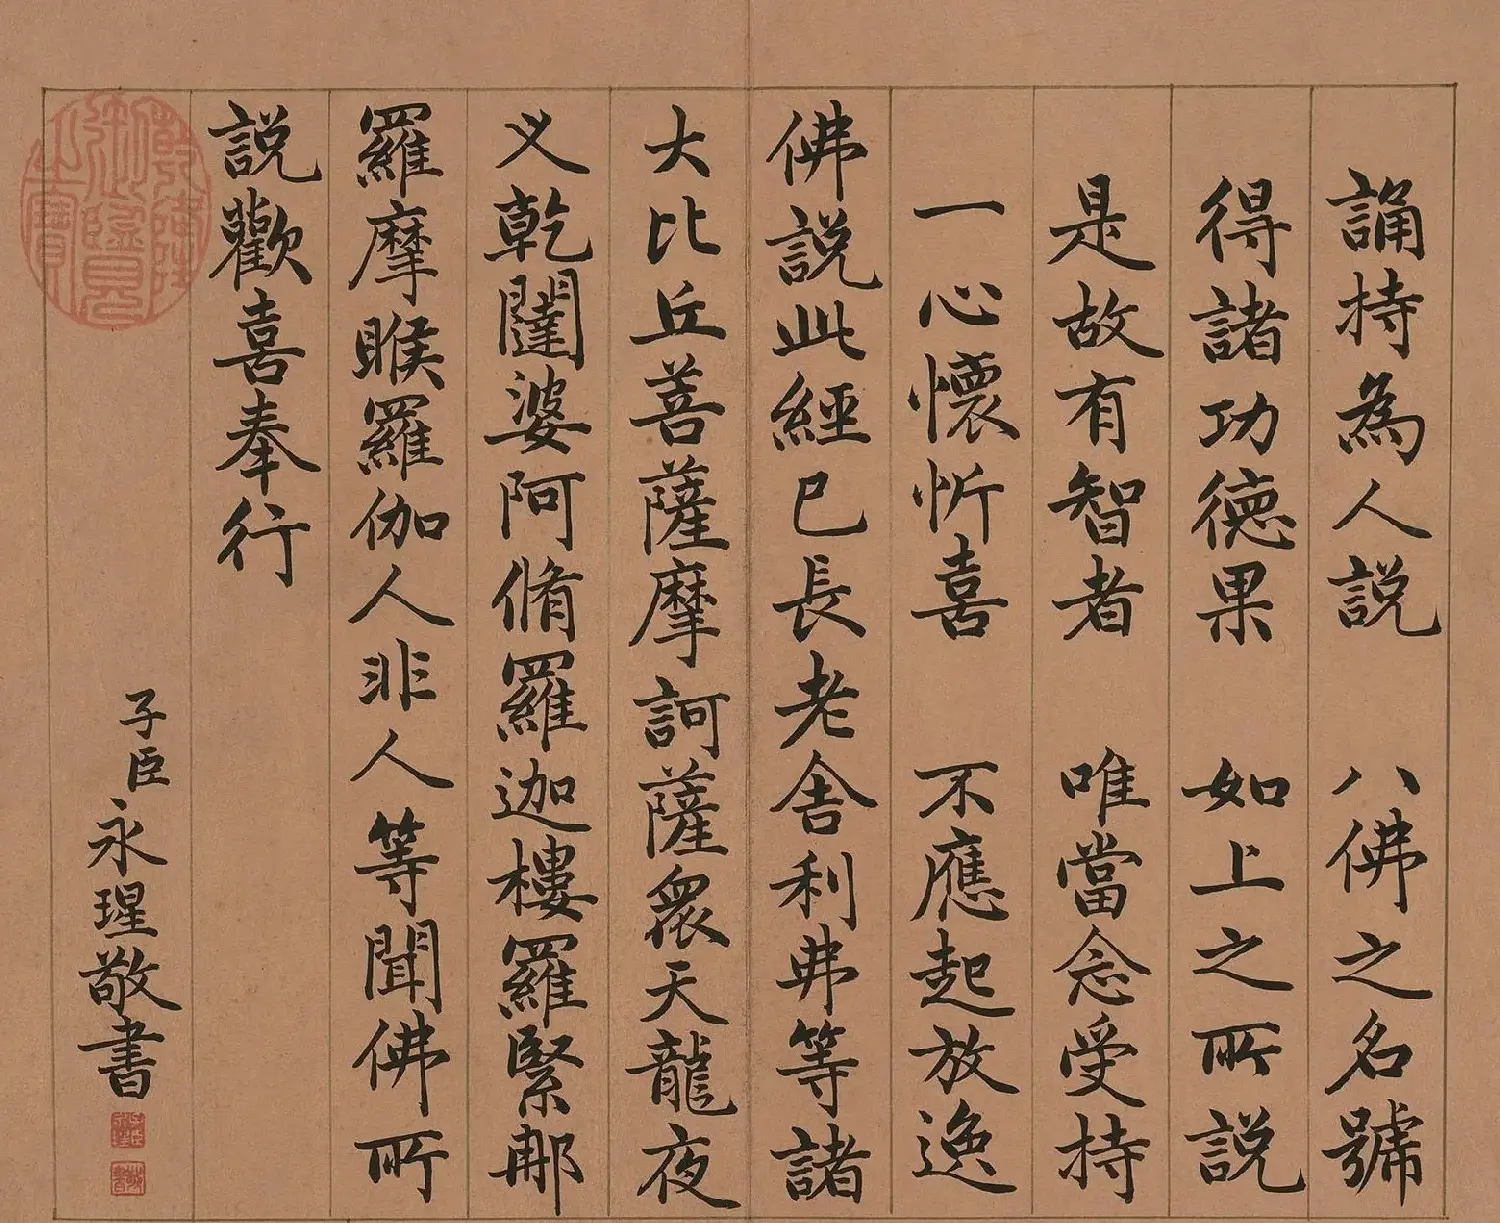 誦持為人説　八佛之名號
得諸功德果　如上之所説
是故有智者　唯當念受持
一心懷忻喜　不應起放逸
佛説此經已長老舍利弗等諸
大比丘菩薩摩訶薩衆天龍夜
义乾闥婆阿脩羅迦樓羅緊那
羅摩睺羅伽人非人等聞佛所
説歡喜奉行
子臣永瑆敬書